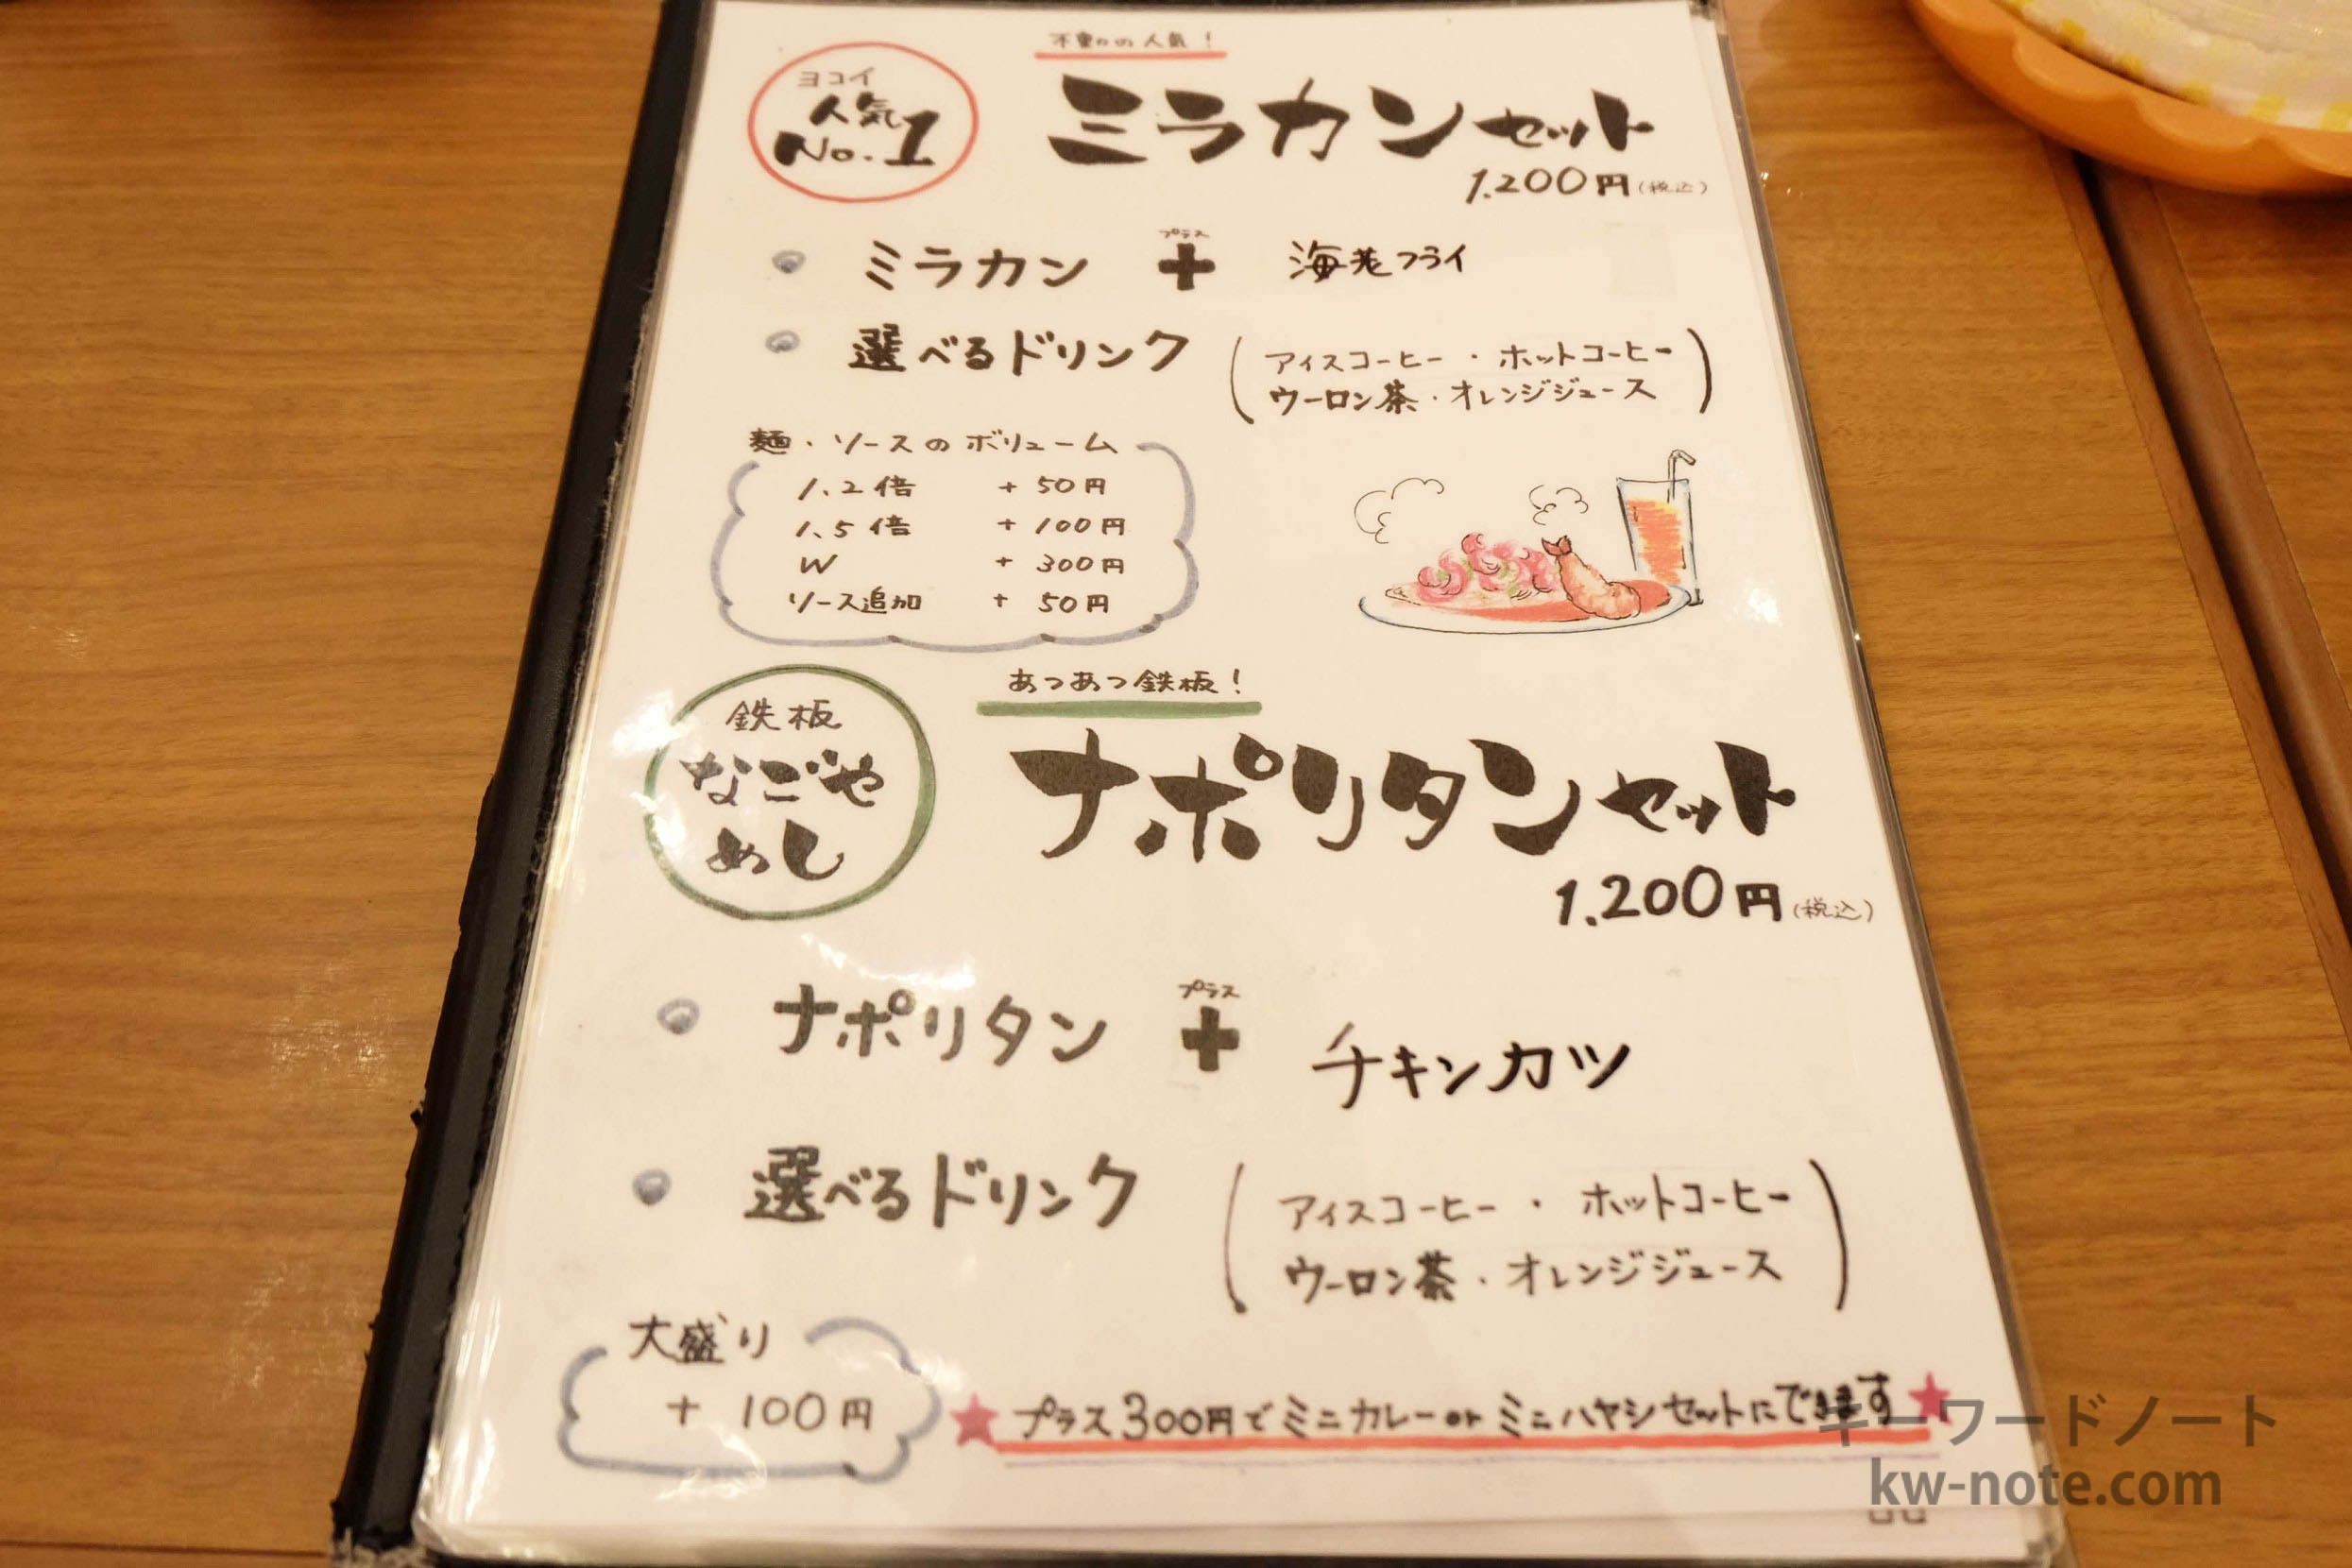 不動の人気!
ヨコイ
人気
No.1
ミラカンセット
1.200円(税込)
プラス
ミラカン + 海老フライ
選べるドリンク
(アイスコーヒー・ホットコーヒー
ウーロン茶・オレンジジュース)
麺・ソースのボリューム
1.2倍 +50円
1.5倍 +100円
W +300円
ソース追加 +50円
あつあつ鉄板!
鉄板
なごや
めし
ナポリタンセット
1.200円(税込)
プラス
ナポリタン + チキンカツ
選べるドリンク
(アイスコーヒー・ホットコーヒー
ウーロン茶・オレンジジュース)
大盛り
+100円
★プラス300円でミニカレーorミニハヤシセットにできます★
キーワードノート
kw-note.com